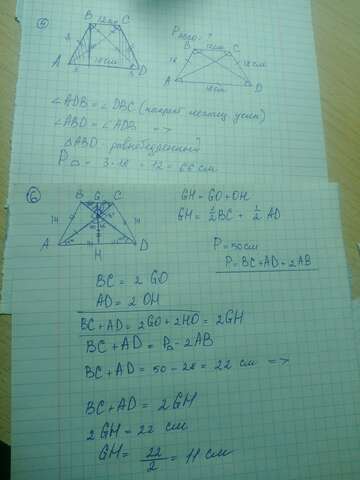 5
B 12см C
18см
A D
P ABCD - ?
B 12см C
18 18см
A D
18см
∠ADB = ∠DBC (накрест лежащ углы)
∠ABD = ∠ADB =>
△ABD - равнобедренный
P = 3·18 + 12 = 66 см
6
B G C
14 14
A H D
GH = GO + OH
GH = 1/2 BC + 1/2 AD
P = 50 см
P = BC + AD + 2AB
BC = 2 GO
AD = 2 OH
BC + AD = 2GO + 2HO = 2GH
BC + AD = P - 2AB
BC + AD = 50 - 28 = 22 см =>
BC + AD = 2GH
2GH = 22 см
GH = 22/2 = 11 см